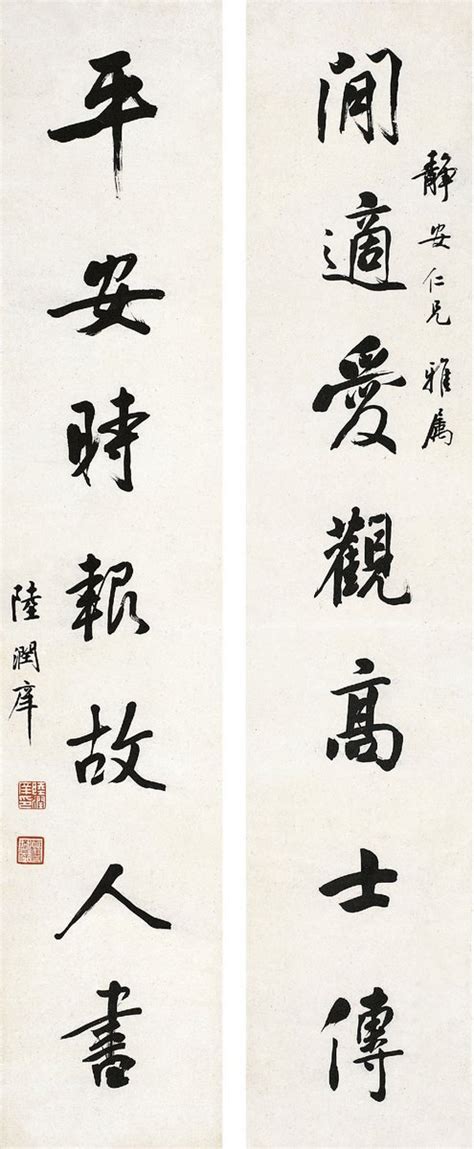 靜安仁兄 雅属
閒適愛觀高士傳
平安時報故人書
陸潤庠